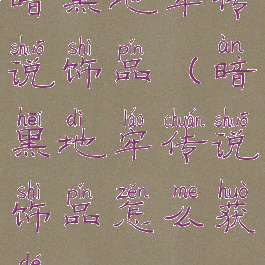 暗黑地牢传
shuō shì pǐn àn
说饰品（暗
hēi dì láo chuán shuō
黑地牢传说
shì pǐn zěn me huò
饰品怎么获
dé